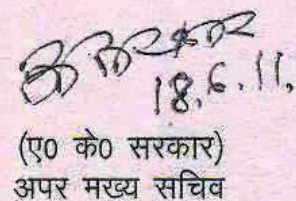 18.6.11.
(ए0 के0 सरकार)
अपर मख्य सचिव